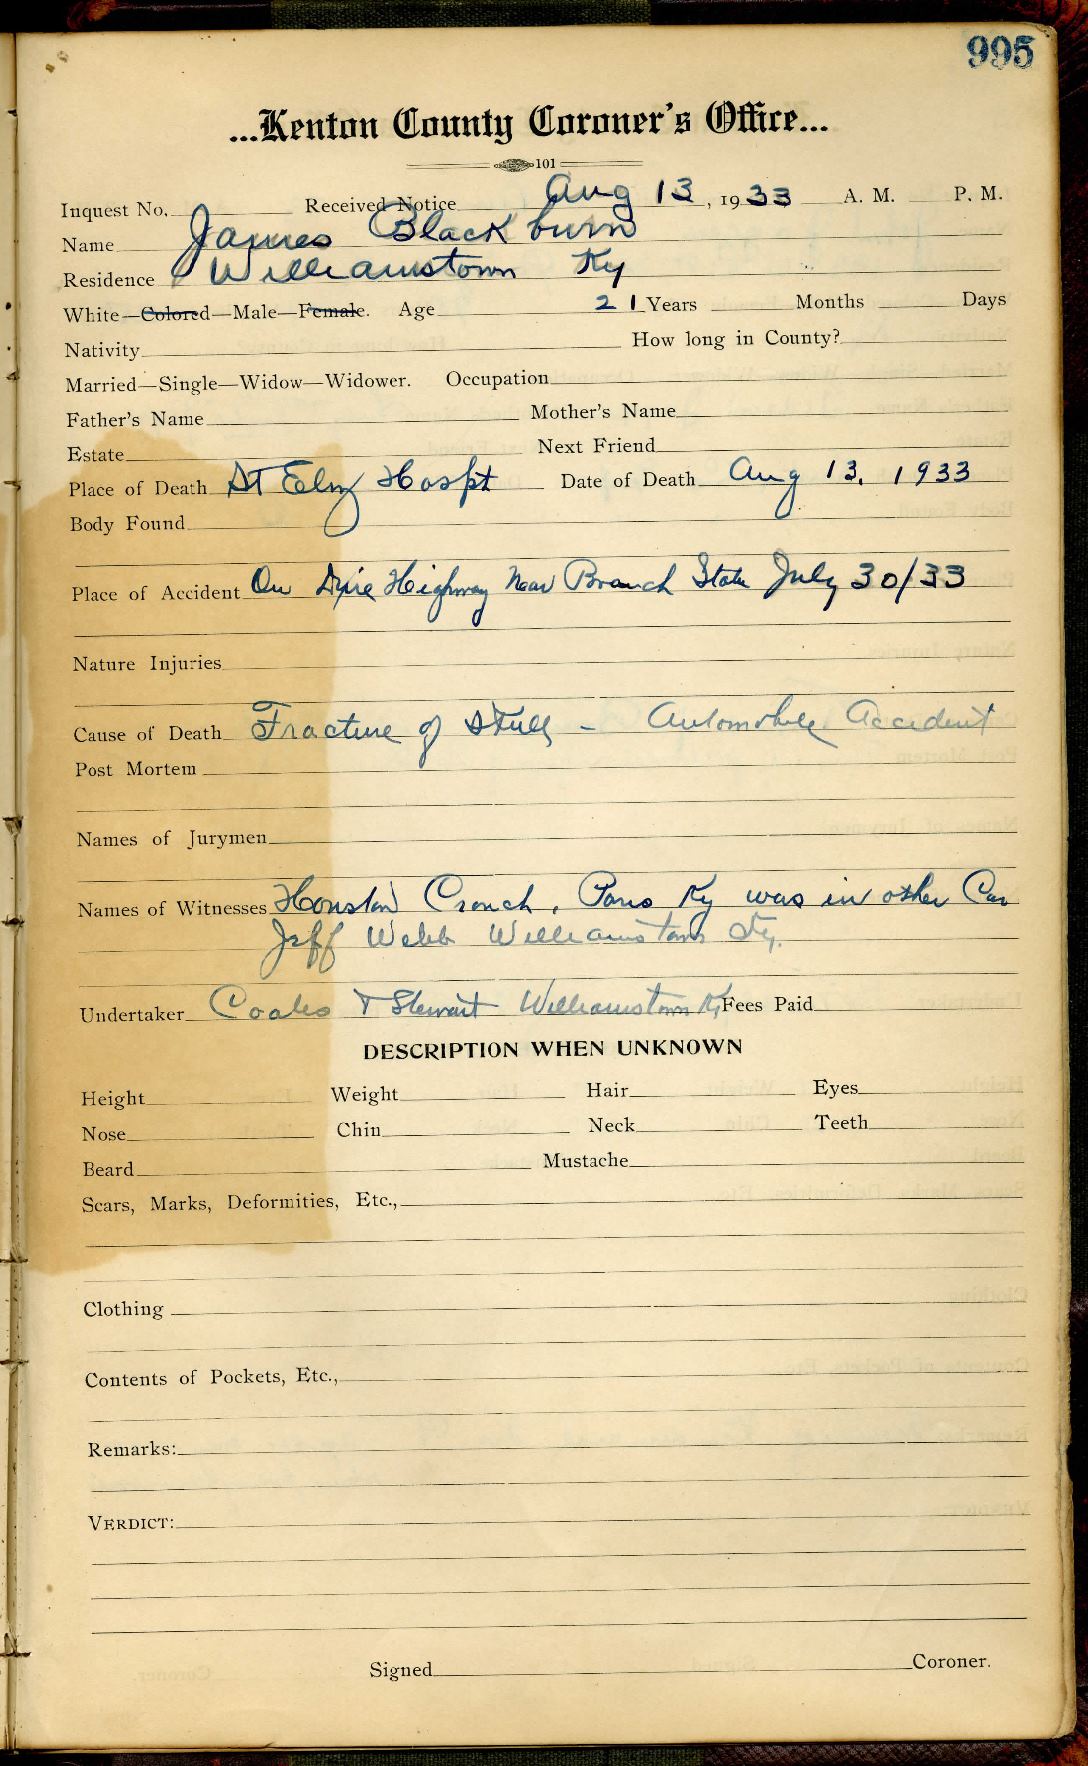 995
...Kenton County Coroner's Office...
101
Inquest No. Received Notice Aug 13, 1933 A. M. P. M.
Name James Blackburn
Residence Williamstown Ky
White—Colored—Male—Female. Age 21 Years Months Days
Nativity How long in County?
Married—Single—Widow—Widower. Occupation
Father's Name Mother's Name
Estate Next Friend
Place of Death St Eliz Hospt Date of Death Aug 13, 1933
Body Found
Place of Accident On Dixie Highway Near Branch State July 30/33
Nature Injuries
Cause of Death Fracture of Skull - Automobile Accident
Post Mortem
Names of Jurymen
Names of Witnesses Houston Crouch, Paris Ky was in other Car
Jeff Webb Williamstown Ky.
Undertaker & Stewart Williamstown Ky Fees Paid
DESCRIPTION WHEN UNKNOWN
Height Weight Hair Eyes
Nose Chin Neck Teeth
Beard Mustache
Scars, Marks, Deformities, Etc.,
Clothing
Contents of Pockets, Etc.,
Remarks:
VERDICT:
Signed Coroner.